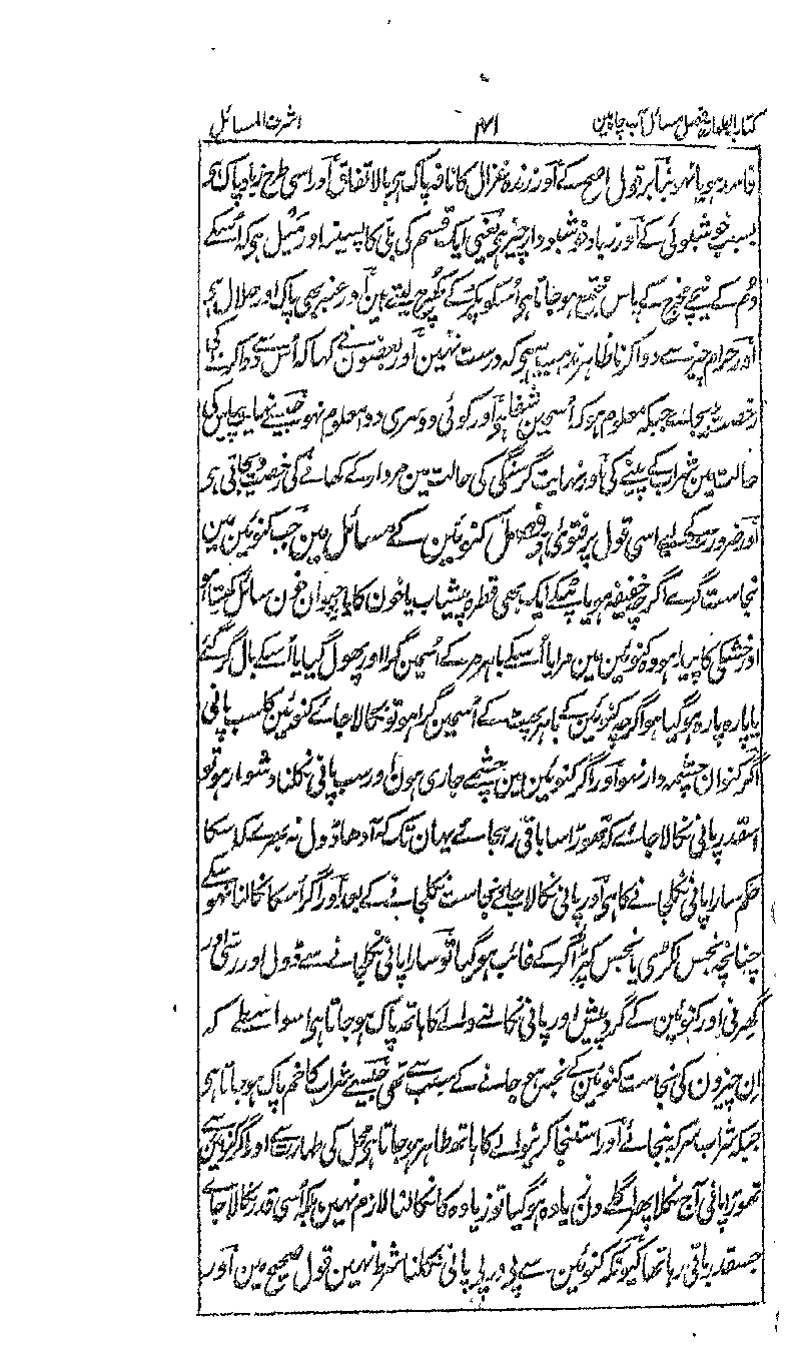 کتاب الطہارة فصل مسائل آب چاہ مین ۱۴۱ اشرف المسائل
فاسد ہو یا نہو بنا بر قول اصح کے اور زندہ غزال کا نافہ پاک ہی بالاتفاق اور اسی طرح زباد پاک ہی
بسبب خوشبوئی کے اور زباد خوشبودار چیز ہی یعنی ایک قسم کی بلی کا پسینہ اور میل ہو کہ اُسکے
دُم کے نیچے مخرج کے پاس مجتمع ہو جاتا ہی اُسکو پکڑ کے کھُرچ لیتے ہین اور عنبر بھی پاک اور حلال ہی
اور حرام چیز سے دوا کرنا ظاہر مذہب یہ ہی کہ درست نہین اور بعضون نے کہا کہ اُس سے دوا کرنے کی
رخصت دیجائے جبکہ معلوم ہو کہ اُسمین شفا ہو اور کوئی دوسری دوا معلوم نہو جیسے نہایت پیاس کی
حالت مین شراب کے پینے کی اور نہایت گرسنگی کی حالت مین مردار کے کھانے کی رخصت دیجاتی ہی
اور ضرورت کے لیے اسی قول پر فتویٰ ہی فصل کنوئین کے مسائل مین جب کنوئین مین
نجاست گرے اگرچہ خفیفہ ہو یا ایک بھی قطرہ پیشاب یا خون کا یا حیوان خون سائل رکھتا ہو
اور خشکی کا پیدا ہو وہ کنوئین مین مرا یا اُسکے باہر مر کے اُسمین گرا اور پھول گیا یا اُسکے بال گر گئے
یا پارہ پارہ ہو گیا ہو اگرچہ کنوئین کے باہر پھٹ کے اُسمین گرا ہو تو نکالا جائے کنوئین کا سب پانی
اگر کنوان چشمہ دار نہو اور اگر کنوئین مین چشمے جاری ہون اور سب پانی نکلنا دشوار ہو تو
اسقدر پانی نکالا جائے کہ تھوڑا سا باقی رہجائے یہان تک کہ آدھا ڈول نہ بھرے کہ اسکا
حکم سارا پانی نکلجانے کا ہی اور پانی نکالا جائے نجاست نکلجانے کے بعد اور اگر اُسکا نکالنا نہو سکے
چنانچہ نجس لکڑی یا نجس کپڑا گر کے غائب ہو گیا تو سارا پانی نکلجانے سے ڈول اور رسی اور
گھرنی اور کنوئین کے گرد پیش اور پانی نکالنے والے کا ہاتھ پاک ہو جاتا ہی اسواسطے کہ
اِن چیزون کی نجاست کنوئین کے نجس ہو جانے کے سبب سے تھی جیسے شراب کا خم پاک ہو جاتا ہی
جبکہ شراب سرکہ بنجائے اور استنجا کرنیوالے کا ہاتھ طاہر ہو جاتا ہی محل کی طہارت سے اور اگر کنوئین سے
تھوڑا پانی آج نکلا پھر اگلے دن زیادہ ہو گیا تو زیادہ کا نکالنا لازم نہین بلکہ اُسی قدر نکالا جائے
جسقدر باقی رہا تھا کیونکہ کنوئین سے پی در پی پانی نکلنا شرط نہین قول صحیح مین اور